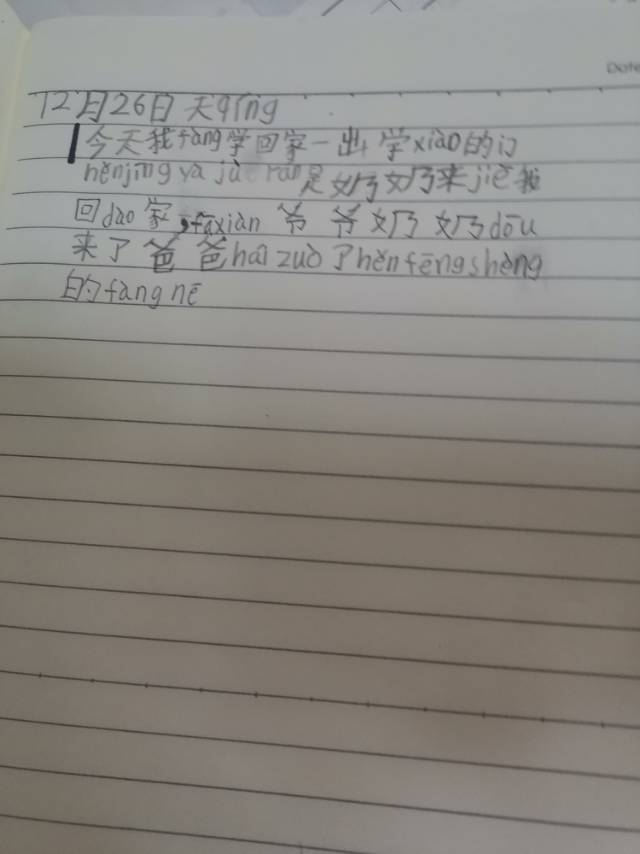 Date
12月26日 天qíng
今天我fàng学回家一出学xiào的门
hěnjīng yà jū rán是奶奶来jiē我
回dào家,fāxiàn 爷爷奶奶dōu
来了爸爸hái zuò了hěnfēngshèng
的fàng nē